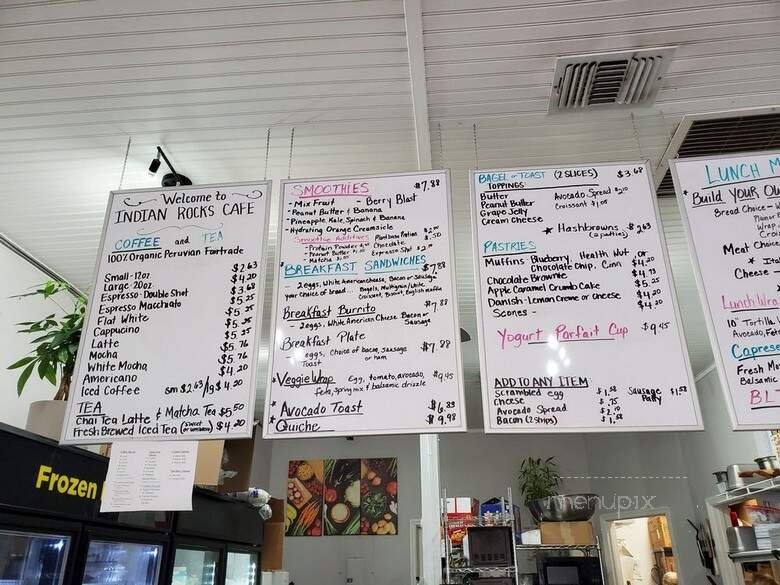 Welcome to
INDIAN ROCKS CAFE
COFFEE and TEA
100% Organic Peruvian Fairtrade
Small - 12oz $2.63
Large - 20oz $4.20
Espresso - Double Shot $3.68
Espresso Macchiato $5.25
Flat White $5.25
Cappucino $5.25
Latte $5.25
Mocha $5.76
White Mocha $5.76
Americano $4.20
Iced Coffee sm $2.63/lg $4.20
TEA
Chai Tea Latte & Matcha Tea $5.50
Fresh Brewed Iced Tea (sweet or unsweet) $4.20
SMOOTHIES $7.88
- Mix Fruit - Berry Blast
- Peanut Butter & Banana
- Pineapple, Kale, Spinach & Banana
- Hydrating Orange Creamsicle
Smoothie Additives
Plantbase Potion $2.00
- Protein Powder Chocolate $.50
- Peanut Butter Espresso Shot $2.00
- Matcha $1.00
BREAKFAST SANDWICHES $7.88
- 2 eggs, White American Cheese, Bacon or Sausage
your choice of bread... Bagels, Multigrain/White,
Croissant, Biscuit, English muffin
Breakfast Burrito $7.88
- 2 eggs, White American Cheese Bacon or
Sausage
Breakfast Plate
eggs, Choice of bacon, Sausage $7.88
Toast or ham
★ Veggie Wrap Egg, tomato, avocado, $9.45
Feta, spring mix & balsamic drizzle
★ Avocado Toast $6.83
★ Quiche $9.98
BAGEL or TOAST (2 SLICES) $3.68
TOPPINGS:
Butter Avocado Spread $2.10
Peanut Butter Croissant $1.05
Grape Jelly
Cream Cheese
★ Hashbrowns $2.63
(2 patties)
PASTRIES
Muffins Blueberry, Health Nut, or
Chocolate Chip, Cinn $4.20
Chocolate Brownie $4.73
Apple Caramel Crumb Cake $5.25
Danish - Lemon Creme or Cheese $4.20
Scones - $4.20
Yogurt Parfait Cup $9.45
ADD TO ANY ITEM
Scrambled egg $1.58 Sausage Patty $1.58
Cheese $.75
Avocado Spread $2.10
Bacon (2 strips) $1.58
LUNCH M
★ Build YOUR OW
Bread Choice - W
Plain
Wrap
Cro
Meat Choic
★ Ita
Cheese
Lunch Wra
10" Tortilla W
Avocado, Fet
Caprese
Fresh Mo
Balsamic
BLT
Frozen
menupix